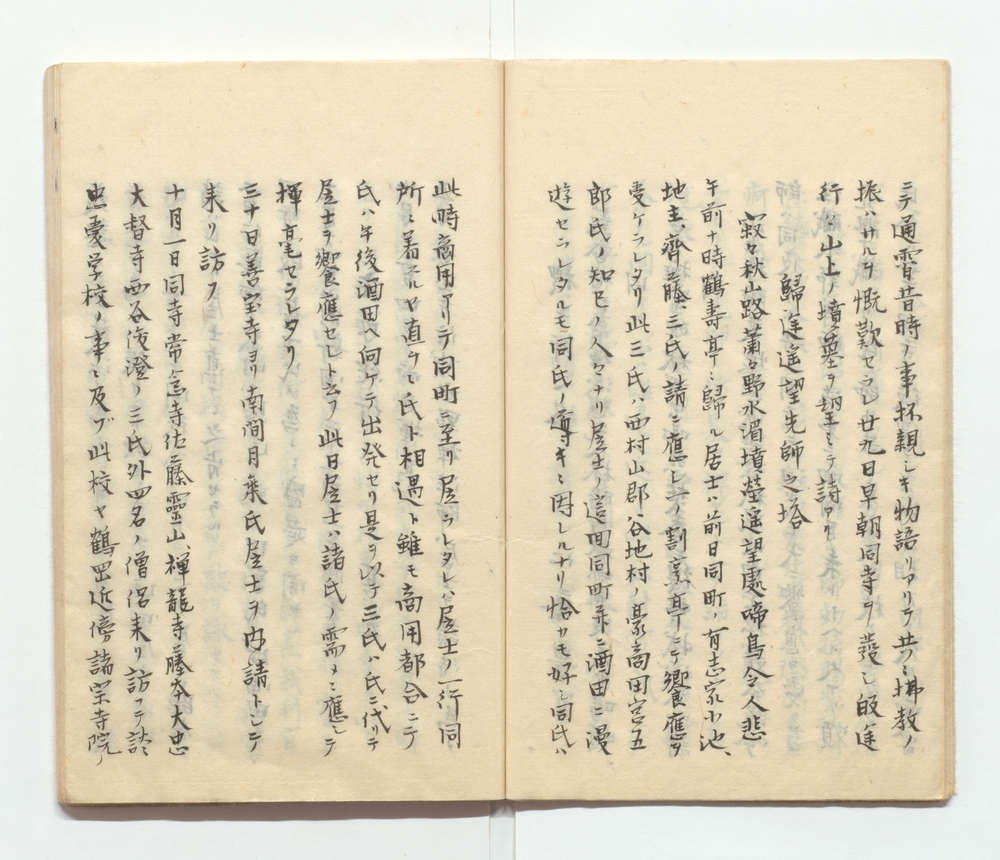 ニテ通宵昔時ノ事抔親シキ物語リアリテ共ニ拂教ノ
振ハサルヲ慨歎セラレ廿九日早朝同寺ヲ発シ皈途
行ガ山上ノ墳墓ヲ望ミテ詩アリ
歸途遙望先師之塔
寂々秋山路蕭々野水湄墳塋遥望處啼鳥令人悲
午前十時鶴壽亭ニ歸ル居士ハ前日同町ノ有志家小池、
地主、齊藤、三氏ノ請ニ應シ一ノ割烹亭ニテ饗應ヲ
受ケラレタリ此三氏ハ西村山郡谷地村ノ豪高田宮五
郎氏ノ知已ノ人々ナリ居士ノ這回同町并ニ酒田ニ漫
遊セラレタルモ同氏ノ導キニ因レルナリ恰カモ好シ同氏ハ
此時商用アリテ同町ニ至リ居ラレタレハ居士ノ一行同
所ニ着スルヤ直チニ氏ト相遇ト雖モ商用都合ニテ
氏ハ午後酒田ヘ向ケテ出発セリ是ヲ以テ三氏ハ氏ニ代リテ
居士ヲ饗應セシト云フ此日居士ハ諸氏ノ需メニ應シテ
揮毫セラレタリ
三十日善宝寺ヨリ南間月乗氏居士ヲ内請トシテ
来リ訪フ
十月一日同寺常念寺佐藤靈山、禅龍寺藤本大忠
大督寺西谷俊澄ノ三氏外四名ノ僧侶来リ訪フテ談
忠愛学校ノ事ニ及ブ此校ヤ鶴岡近傍諸宗寺院ノ